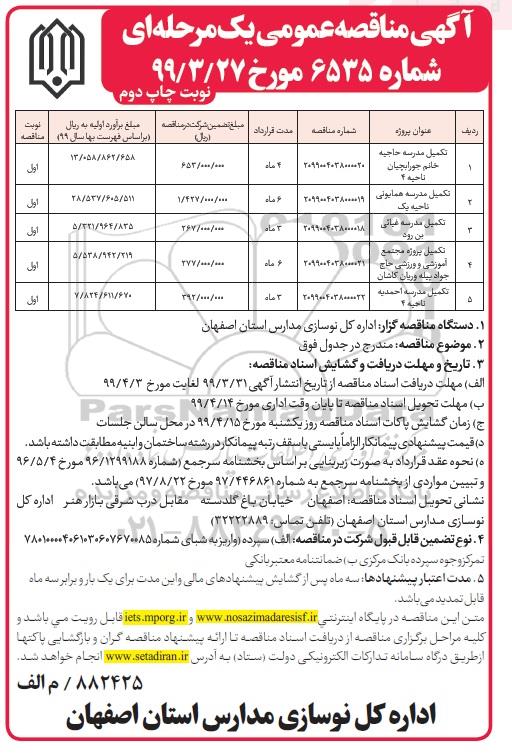 آگهی مناقصه عمومی یک مرحله‌ای
شماره ۶۵۳۵ مورخ ۹۹/۳/۲۷
نوبت چاپ دوم
ردیف	عنوان پروژه	شماره مناقصه	مدت قرارداد	مبلغ تضمین شرکت در مناقصه (ریال)	مبلغ برآورد اولیه به ریال (براساس فهرست بها سال ۹۹)	نوبت مناقصه
۱	تکمیل مدرسه حاجیه خانم جورابچیان ناحیه ۴	۲۰۹۹۰۰۴۰۳۸۰۰۰۰۲۰	۴ ماه	۶۵۳/۰۰۰/۰۰۰	۱۳/۰۵۸/۸۶۲/۶۵۸	اول
۲	تکمیل مدرسه همایونی ناحیه یک	۲۰۹۹۰۰۴۰۳۸۰۰۰۰۱۹	۶ ماه	۱/۴۲۷/۰۰۰/۰۰۰	۲۸/۵۳۷/۶۰۵/۵۱۱	اول
۳	تکمیل مدرسه غیاثی بن رود	۲۰۹۹۰۰۴۰۳۸۰۰۰۰۱۸	۳ ماه	۲۶۷/۰۰۰/۰۰۰	۵/۳۲۱/۹۶۴/۸۳۵	اول
۴	تکمیل پروژه مجتمع آموزشی و ورزشی حاج جواد پیله وریان کاشان	۲۰۹۹۰۰۴۰۳۸۰۰۰۰۲۱	۶ ماه	۲۷۷/۰۰۰/۰۰۰	۵/۵۳۸/۹۴۲/۲۱۹	اول
۵	تکمیل مدرسه احمدیه ناحیه ۴	۲۰۹۹۰۰۴۰۳۸۰۰۰۰۲۲	۳ ماه	۳۹۲/۰۰۰/۰۰۰	۷/۸۲۴/۶۱۱/۶۷۰	اول
۱. دستگاه مناقصه گزار: اداره کل نوسازی مدارس استان اصفهان
۲. موضوع مناقصه: مندرج در جدول فوق
۳. تاریخ و مهلت دریافت و گشایش اسناد مناقصه:
الف) مهلت دریافت اسناد مناقصه از تاریخ انتشار آگهی ۹۹/۳/۳۱ لغایت مورخ ۹۹/۴/۳
ب) مهلت تحویل اسناد مناقصه تا پایان وقت اداری مورخ ۹۹/۴/۱۴
ج) زمان گشایش پاکات اسناد مناقصه روز یکشنبه مورخ ۹۹/۴/۱۵ در محل سالن جلسات
د) قیمت پیشنهادی پیمانکار الزاماً بایستی با سقف رتبه پیمانکار در رشته ساختمان و ابنیه مطابقت داشته باشد.
ه) نحوه عقد قرارداد به صورت زیربنایی بر اساس بخشنامه سرجمع (شماره ۹۶/۱۲۹۹۱۸۸ مورخ ۹۶/۵/۴
و تبیین مواردی از بخشنامه سرجمع به شماره ۹۷/۴۴۶۸۶۱ مورخ ۹۷/۸/۲۲) می‌باشد.
نشانی تحویل اسناد مناقصه: اصفهان خیابان باغ گلدسته مقابل درب شرقی بازار هنر اداره کل
نوسازی مدارس استان اصفهان (تلفن تماس: ۳۲۲۲۲۸۸۹)
۴. نوع تضمین قابل قبول شرکت در مناقصه: الف) سپرده (واریز به شبای شماره ۷۸۰۱۰۰۰۰۴۰۶۱۰۳۰۶۰۷۶۷۰۰۸۵
تمرکز وجوه سپرده بانک مرکزی ب) ضمانتنامه معتبر بانکی
۵. مدت اعتبار پیشنهادها: سه ماه پس از گشایش پیشنهادهای مالی و این مدت برای یک بار و برابر سه ماه
قابل تمدید می‌باشد.
متن این مناقصه در پایگاه اینترنتی www.nosazimadaresisf.ir و iets.mporg.ir قابل رویت می باشد و
کلیه مراحل برگزاری مناقصه از دریافت اسناد مناقصه تا ارائه پیشنهاد مناقصه گران و بازگشایی پاکتها
ازطریق درگاه سامانه تدارکات الکترونیکی دولت (ستاد) به آدرس www.setadiran.ir انجام خواهد شد.
۸۸۲۴۲۵ / م الف
اداره کل نوسازی مدارس استان اصفهان
ParsNamadData
۰۲۱-۸۸۳۴۹۶۷۰